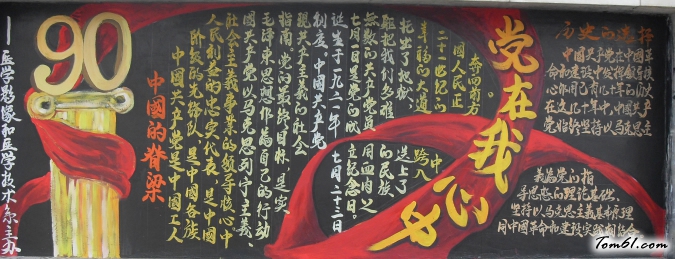 历史的选择
中国共产党在中国革
命和建设中发挥领导核
心作用已有七十年的历史
在这几十年中,中国共产
党始终坚持以马克思主
义为党的指
导思想的理论基础,
坚持以马克思主义基本原理
同中国革命和建设实践相结合
党在我心中
奔向前方
中国人民正
跨入
二十一世纪的
幸福的大道
走上了
把我们多难
的民族
无数的共产党员
用血肉
七月一日是党的成
立纪念日。
诞生于一九二一年
七月二十三日
制度。中国共产党
现共产主义的社会
指南。党的最终目标,是实
毛泽东思想作为自己的行动
国共产党以马克思列宁主义、
社会主义事业的领导核心。中
人民利益的忠实代表,是中国
阶级的先锋队,是中国各族
中国共产党是中国工人
中國的脊梁
90
医学影像和医学技术系主办
Tom61.com